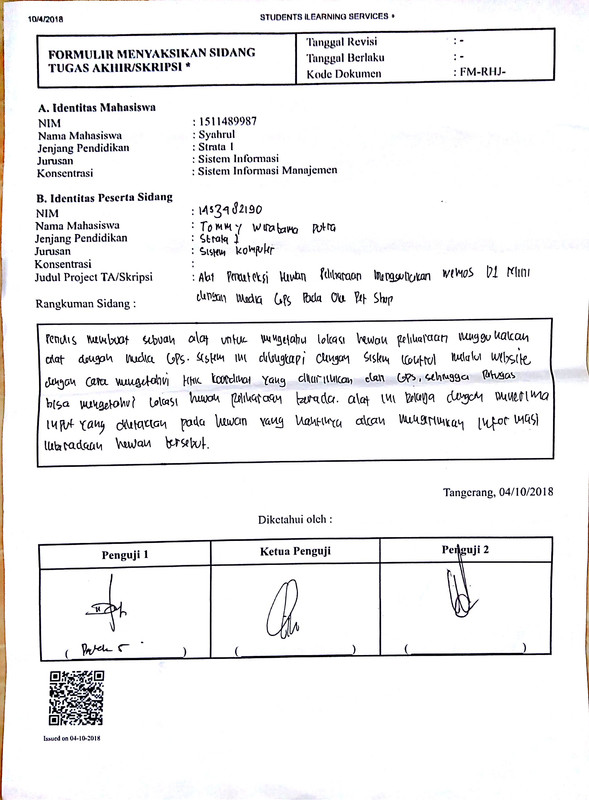 10/4/2018
STUDENTS iLEARNING SERVICES *
FORMULIR MENYAKSIKAN SIDANG
TUGAS AKHIR/SKRIPSI *
Tanggal Revisi : -
Tanggal Berlaku : -
Kode Dokumen : FM-RHJ-
A. Identitas Mahasiswa
NIM : 1511489987
Nama Mahasiswa : Syahrul
Jenjang Pendidikan : Strata 1
Jurusan : Sistem Informasi
Konsentrasi : Sistem Informasi Manajemen
B. Identitas Peserta Sidang
NIM : 1453482190
Nama Mahasiswa : Tommy Wiratama Putra
Jenjang Pendidikan : Strata 1
Jurusan : Sistem Komputer
Konsentrasi :
Judul Project TA/Skripsi : Alat Pendeteksi Hewan Peliharaan Menggunakan Wemos D1 Mini
dengan Media GPS Pada Pet Shop
Rangkuman Sidang :
Penulis membuat sebuah alat untuk mengetahui lokasi hewan peliharaan menggunakan
alat dengan media GPS. Sistem ini dilengkapi dengan sistem control melalui website
dengan cara mengetahui titik koordinat yang dikirimkan dari GPS, sehingga petugas
bisa mengetahui lokasi hewan peliharaan berada. alat ini bekerja dengan menerima
input yang diletakkan pada hewan yang nantinya akan mengirimkan informasi
keberadaan hewan tersebut.
Tangerang, 04/10/2018
Diketahui oleh :
Penguji 1
Ketua Penguji
Penguji 2
( )
( )
( )
Issued on 04-10-2018